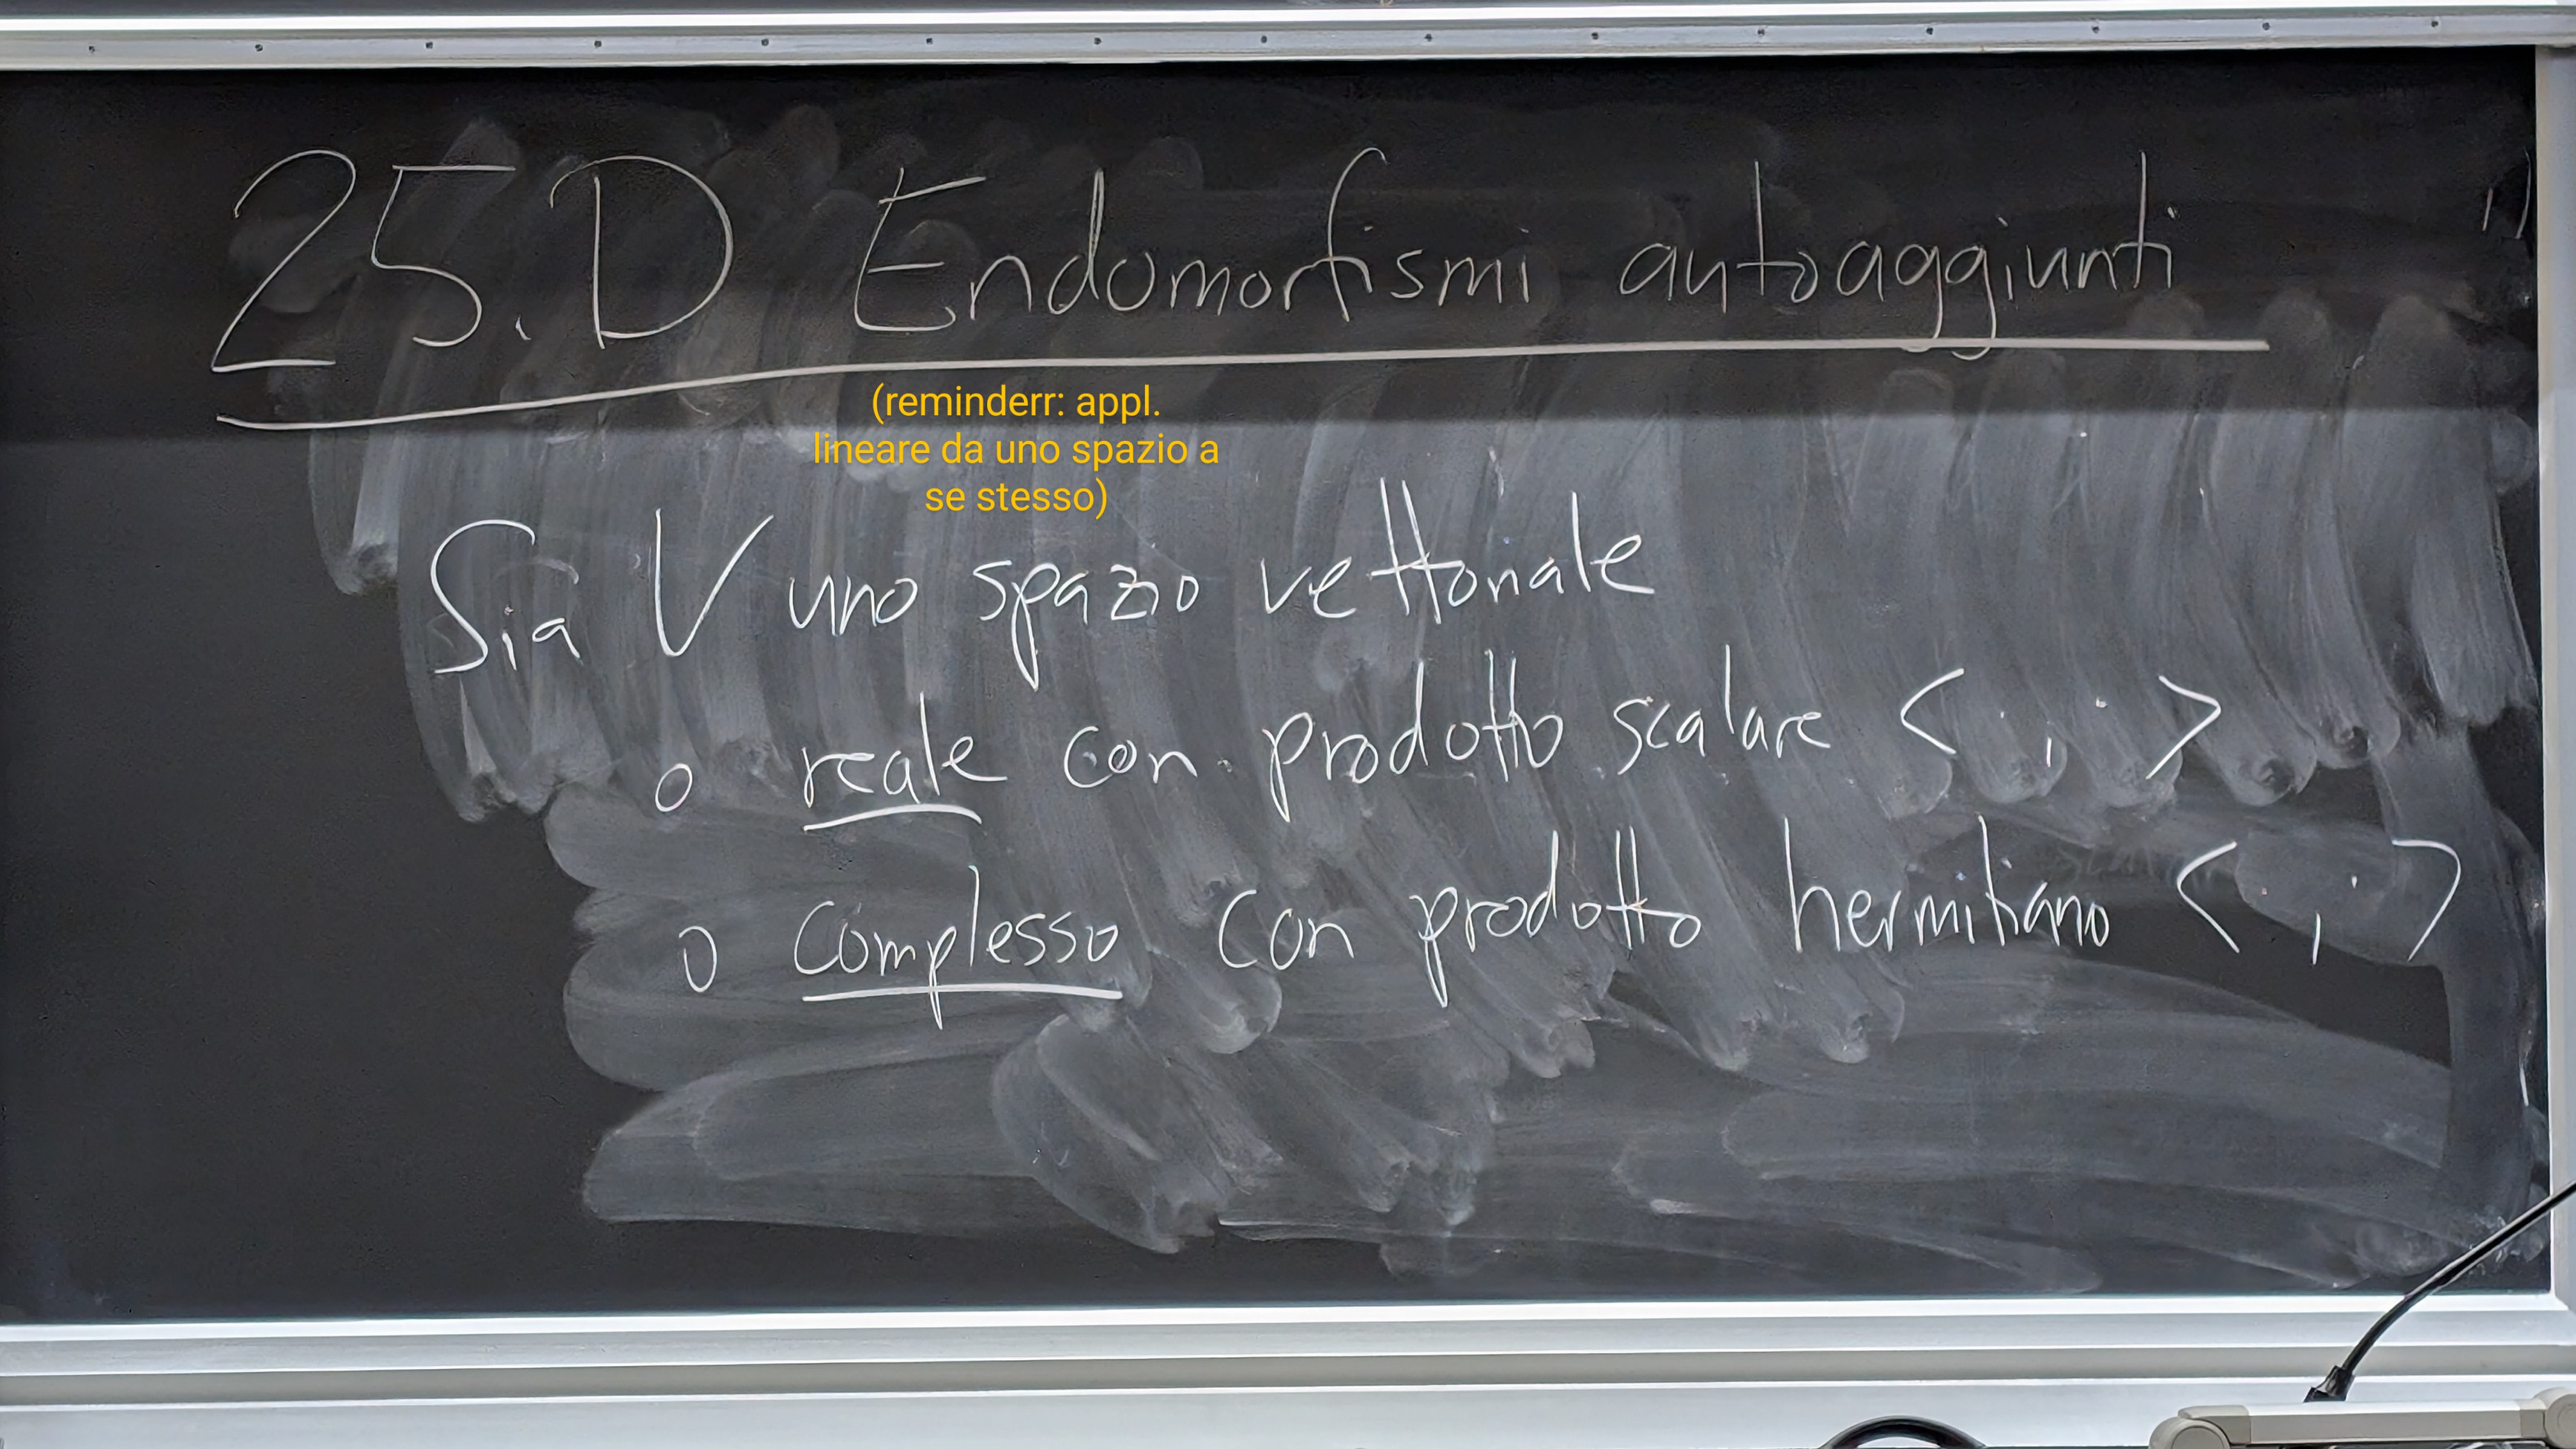 25.D Endomorfismi autoaggiunti
(reminderr: appl.
lineare da uno spazio a
se stesso)
Sia V uno spazio vettoriale
o reale con prodotto scalare < · , · >
o complesso con prodotto hermitiano < · , · >